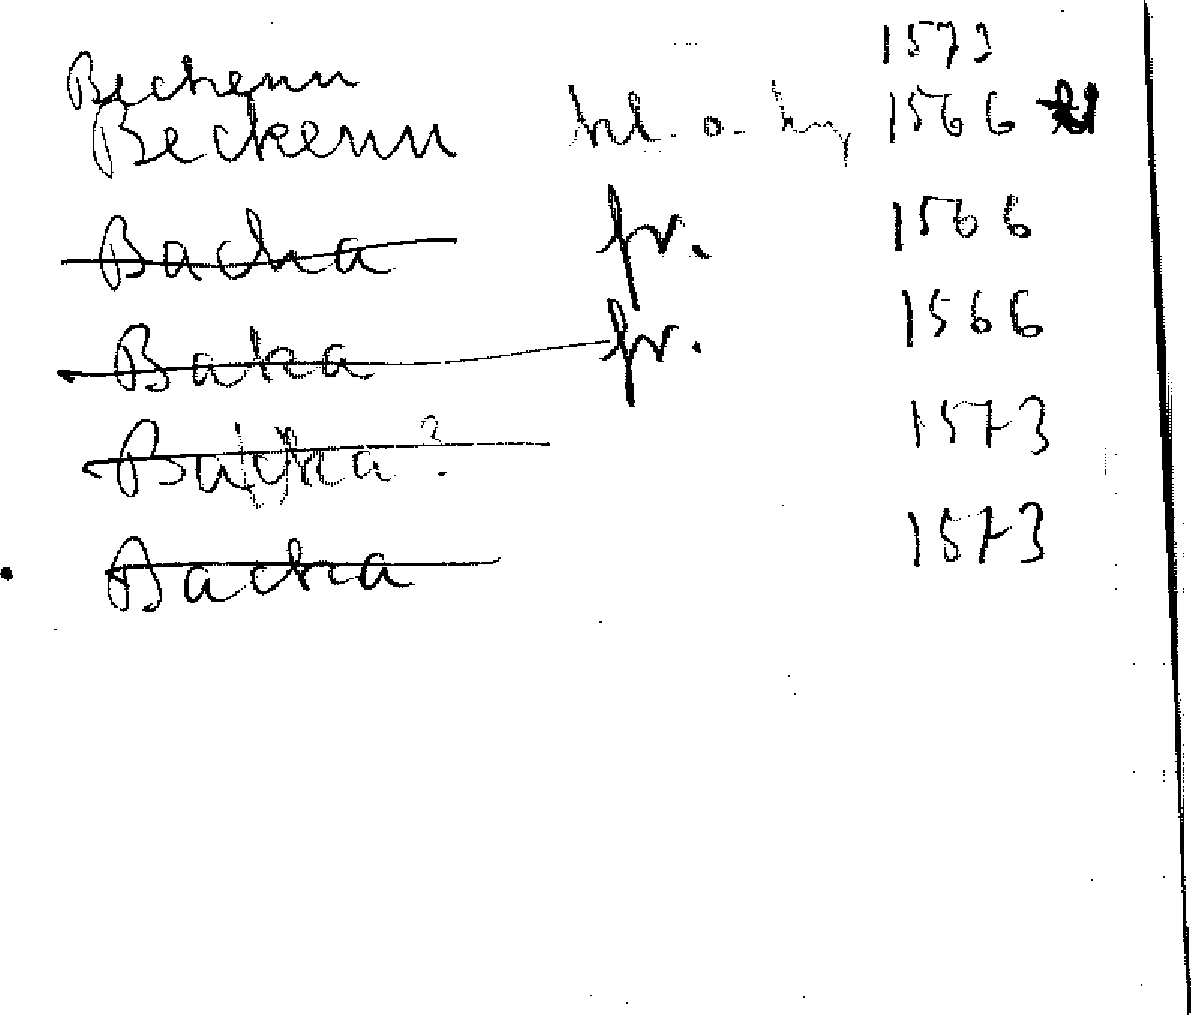 Beckenn 1573
Beckenn kl. o. 1566
Bacha fr. 1566
Baka fr. 1566
Backa? 1573
Backa 1573